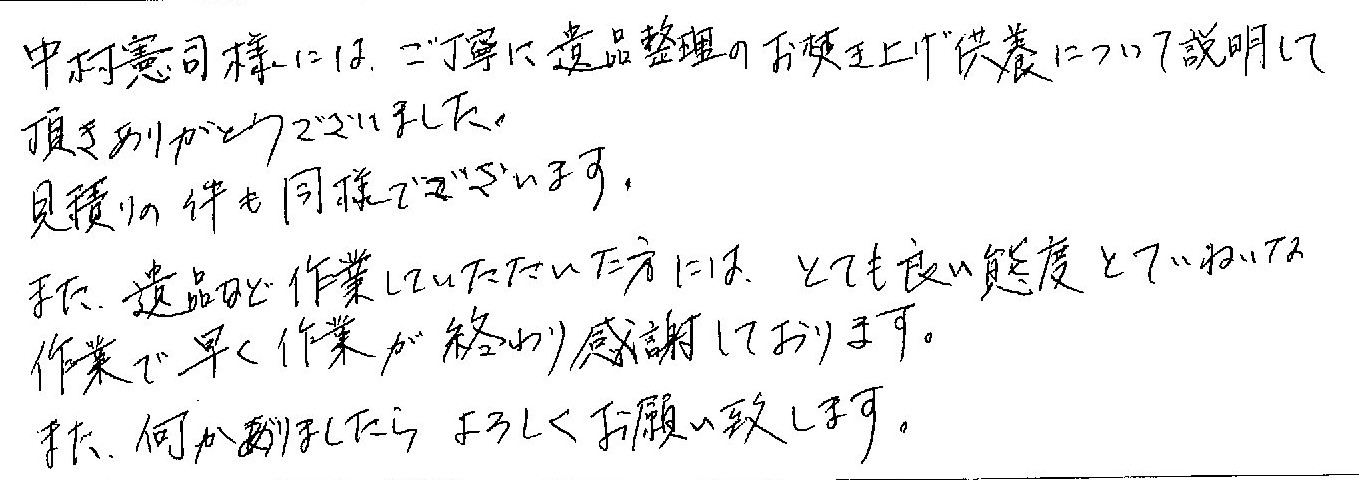 中村憲司様には、ご丁寧に遺品整理のお焚き上げ供養について説明して
頂きありがとうございました。
見積りの件も同様でございます。
また、遺品など作業していただいた方には、とても良い態度とていねいな
作業で早く作業が終わり感謝しております。
また、何かありましたらよろしくお願い致します。